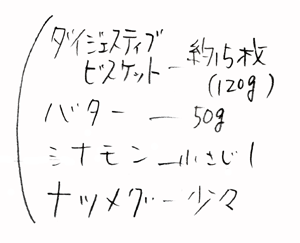 ダイジェスティブ
ビスケット ― 約15枚
(120g)
バター ― 50g
シナモン ― 小さじ1
ナツメグ ― 少々